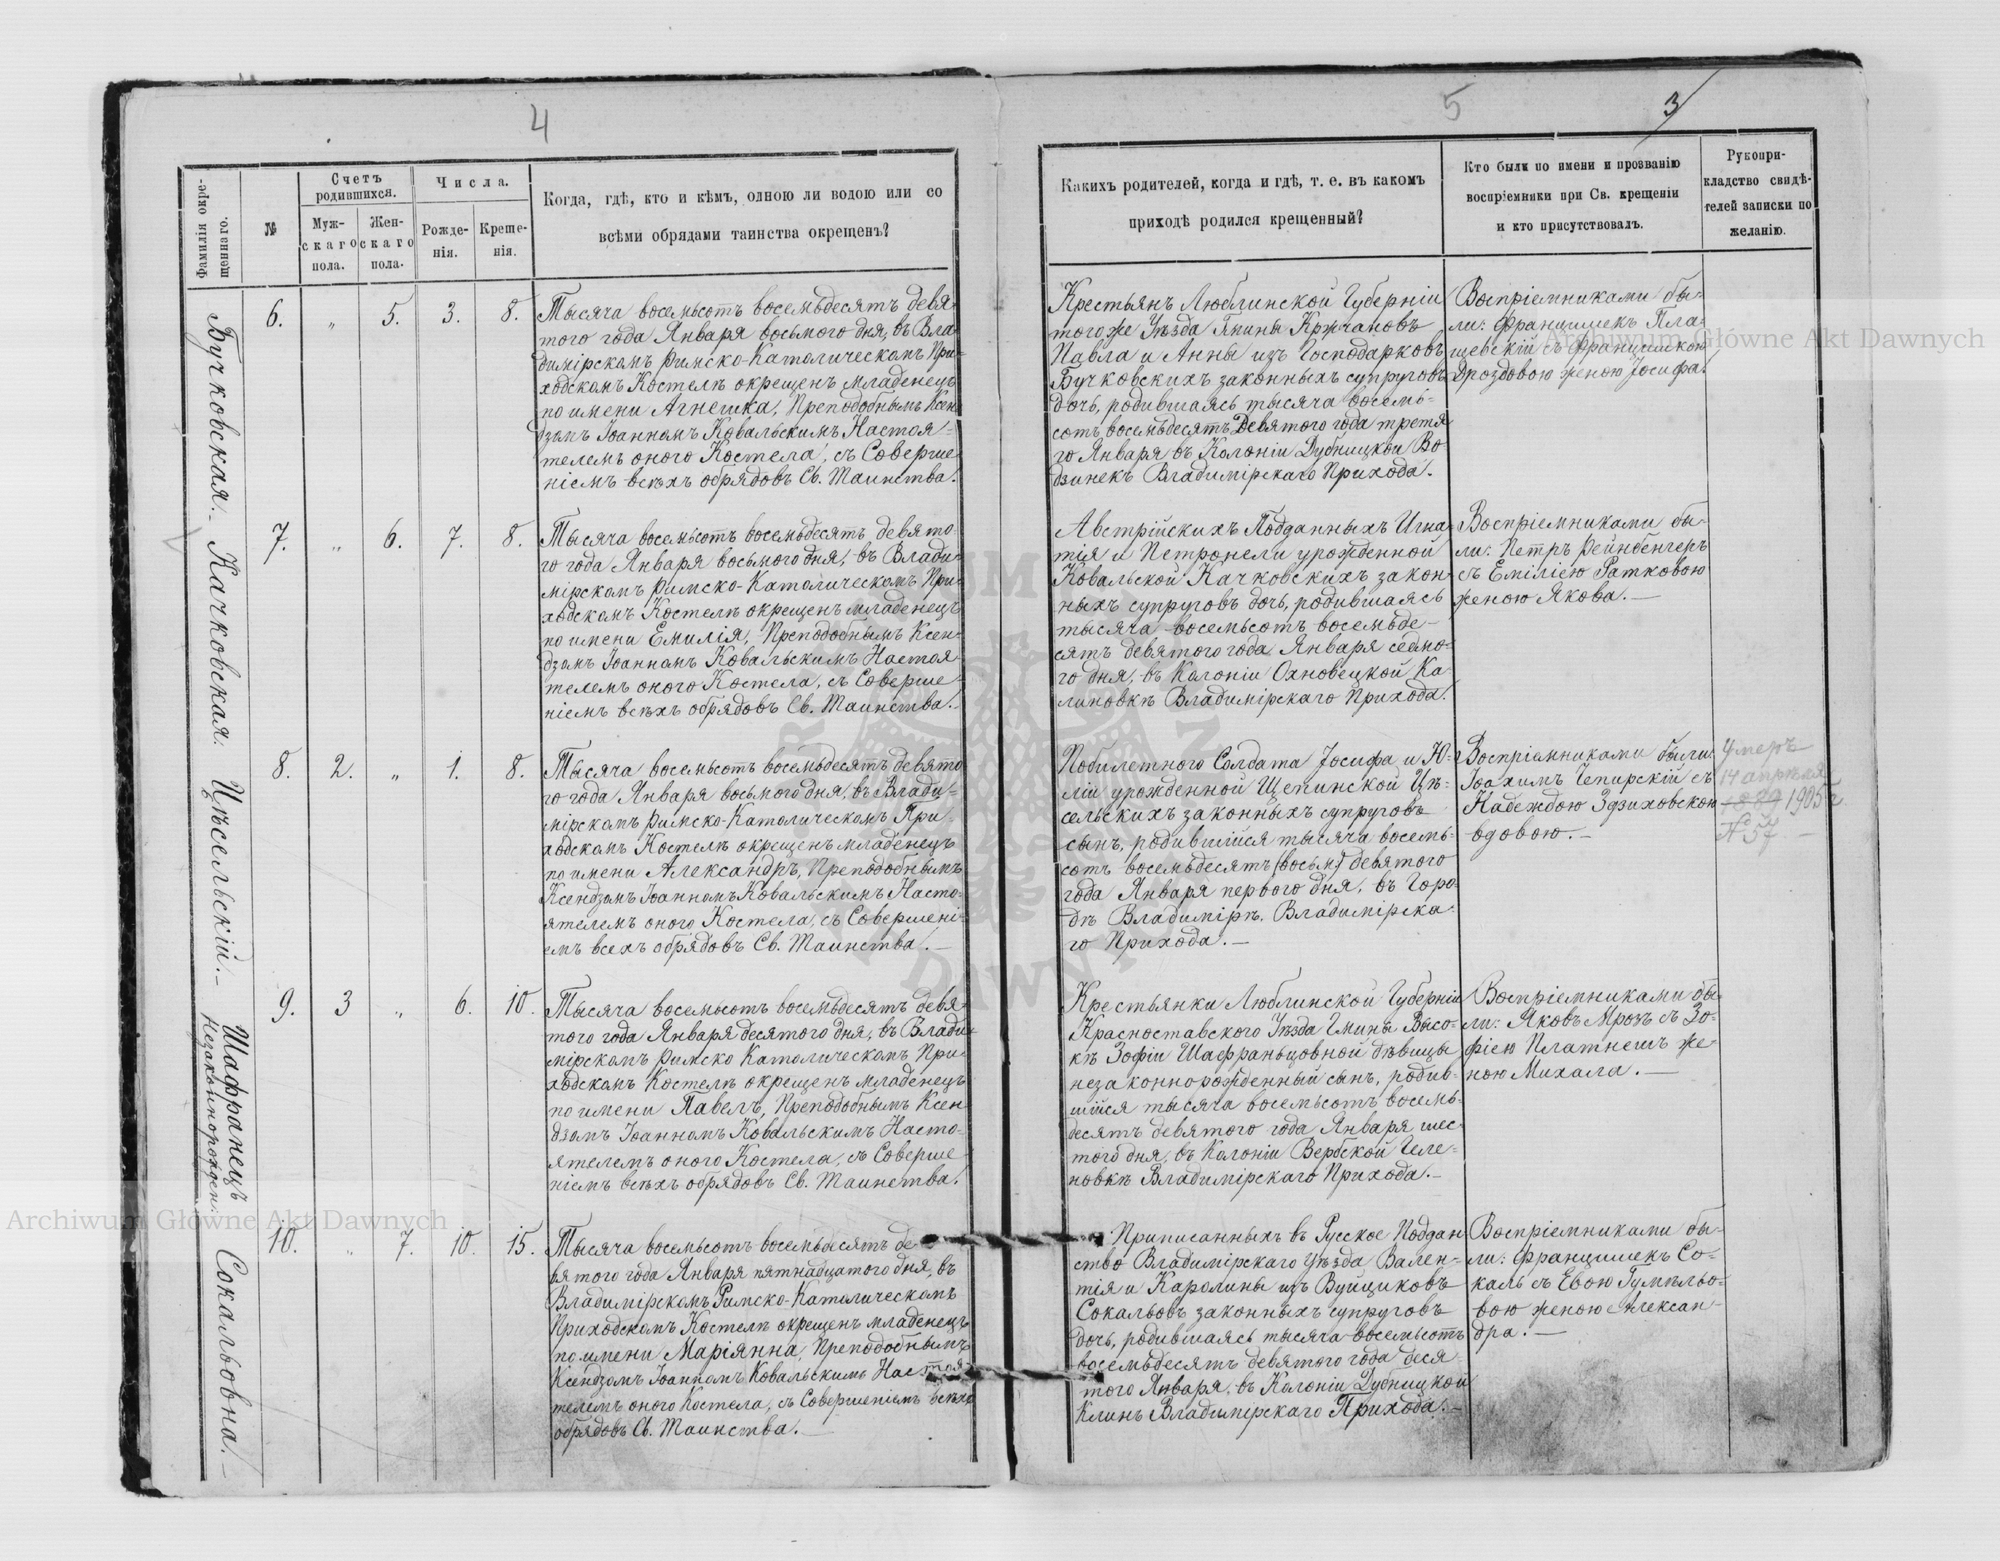 4
Фамиліи окре-
щеннаго.
№
Счетъ
родившихся.
Муж-
скаго
пола.
Жен-
скаго
пола.
Числа.
Рожде-
нія.
Креще-
нія.
Когда, гдѣ, кто и кѣмъ, одною ли водою или со
всѣми обрядами таинства окрещенъ?
Бучковская.
6.
„
5.
3.
8.
Тысяча восемьсотъ восемьдесятъ девя-
того года Января восьмого дня, въ Вла-
димірскомъ Римско-Католическомъ При-
ходскомъ Костелѣ окрещенъ младенецъ
по имени Агнешка, Преподобнымъ Ксен-
дзомъ Іоанномъ Ковальскимъ Настоя-
телемъ оного Костела, съ Соверше-
ніемъ всѣхъ обрядовъ Св. Таинства.
Качковская.
7.
„
6.
7.
8.
Тысяча восемьсотъ восемьдесятъ девято-
го года Января восьмого дня, въ Влади-
мірскомъ Римско-Католическомъ При-
ходскомъ Костелѣ окрещенъ младенецъ
по имени Емилія, Преподобнымъ Ксен-
дзомъ Іоанномъ Ковальскимъ Настоя-
телемъ оного Костела, съ Соверше-
ніемъ всѣхъ обрядовъ Св. Таинства.
Цѣсельскій.
8.
2.
„
1.
8.
Тысяча восемьсотъ восемьдесятъ девято-
го года Января восьмого дня, въ Влади-
мірскомъ Римско-Католическомъ При-
ходскомъ Костелѣ окрещенъ младенецъ
по имени Александръ, Преподобнымъ
Ксендзомъ Іоанномъ Ковальскимъ Насто-
ятелемъ оного Костела, съ Совершені-
емъ всехъ обрядовъ Св. Таинства.
Шафранецъ
незаконнорожден:
9.
3
„
6.
10.
Тысяча восемьсотъ восемьдесятъ девя-
того года Января десятого дня, въ Влади-
мірскомъ Римско Католическомъ При-
ходскомъ Костелѣ окрещенъ младенецъ
по имени Павелъ, Преподобнымъ Ксен-
дзомъ Іоанномъ Ковальскимъ Насто-
ятелемъ оного Костела, съ Соверше-
ніемъ всѣхъ обрядовъ Св. Таинства.
Сокальовна.
10.
„
7.
10.
15.
Тысяча восемьсотъ восемьдесятъ де-
вятого года Января пятнадцатого дня, въ
Владимірскомъ Римско-Католическомъ
Приходскомъ Костелѣ окрещенъ младенецъ
по имени Маріянна, Преподобнымъ
Ксендзомъ Іоанномъ Ковальскимъ Настоя-
телемъ оного Костела, съ Совершеніемъ всѣхъ
обрядовъ Св. Таинства.
5
3
Какихъ родителей, когда и гдѣ, т. е. въ какомъ
приходѣ родился крещенный?
Кто были по имени и прозванію
воспріемники при Св. крещеніи
и кто присутствовалъ.
Рукопри-
кладство свидѣ-
телей записки по
желанію.
Крестьянъ Люблинской Губерніи
тогоже Уѣзда Гмины Кржчановъ
Павла и Анны изъ Господарковъ
Бучковскихъ законныхъ супруговъ
дочь, родившаясь тысяча восемь-
сотъ восемьдесятъ Девятого года третя
го Января въ Колоніи Дубницкой Во-
дзинекъ Владимірскаго Прихода.
Воспріемниками бы-
ли: Францишекъ Пла-
щевскій съ Францишкою
Дроздовою женою Іосифа.
Австрійскихъ Подданныхъ Игна-
тія и Петронели урожденной
Ковальской Качковскихъ закон-
ныхъ супруговъ дочь, родившаясь
тысяча восемьсотъ восемьде-
сятъ девятого года Января седмо-
го дня, въ Колоніи Охновецкой Ка-
линовкѣ Владимірскаго Прихода.
Воспріемниками бы-
ли: Петръ Рейнбенгеръ
съ Еміліею Ратковою
женою Якова.
Побилетного Солдата Іосифа и Ю-
ліи урожденной Щепинской Цѣ-
сельскихъ законныхъ супруговъ
сынъ, родившійся тысяча восемь-
сотъ восемьдесятъ (восьм) девятого
года Января первого дня, въ Горо-
дѣ Владимірѣ, Владимірска-
го Прихода.
Воспріемниками были:
Іоахимъ Чепирскій съ
Надеждою Здзиховскою
вдовою.
Умеръ
14 апрѣля
1889 1905 г
№ 57
Крестьянки Люблинской Губерніи
Красноставского Уѣзда Гмины Высо-
кѣ Зофіи Шафраньцовной дѣвицы
незаконнорожденный сынъ, родив-
шійся тысяча восемьсотъ восемь-
десятъ девятого года Января шес-
того дня, въ Колоніи Вербской Геле-
новкѣ Владимірскаго Прихода.
Воспріемниками бы-
ли: Яковъ Мрозъ съ Зо-
фіею Платнешъ же-
ною Михала.
Приписанныхъ въ Русское Поддан
ство Владимірскаго Уѣзда Вален-
тія и Каролины изъ Вуйциковъ
Сокальовъ законныхъ супруговъ
дочь, родившаясь тысяча восемьсотъ
восемьдесятъ девятого года деся
того Января, въ Колоніи Дубницкой
Клинъ Владимірскаго Прихода.
Воспріемниками бы-
ли: Францишекъ Со-
каль съ Евою Гумѣльо-
вою женою Алексан-
дра.
Archiwum Główne Akt Dawnych
Archiwum Główne Akt Dawnych